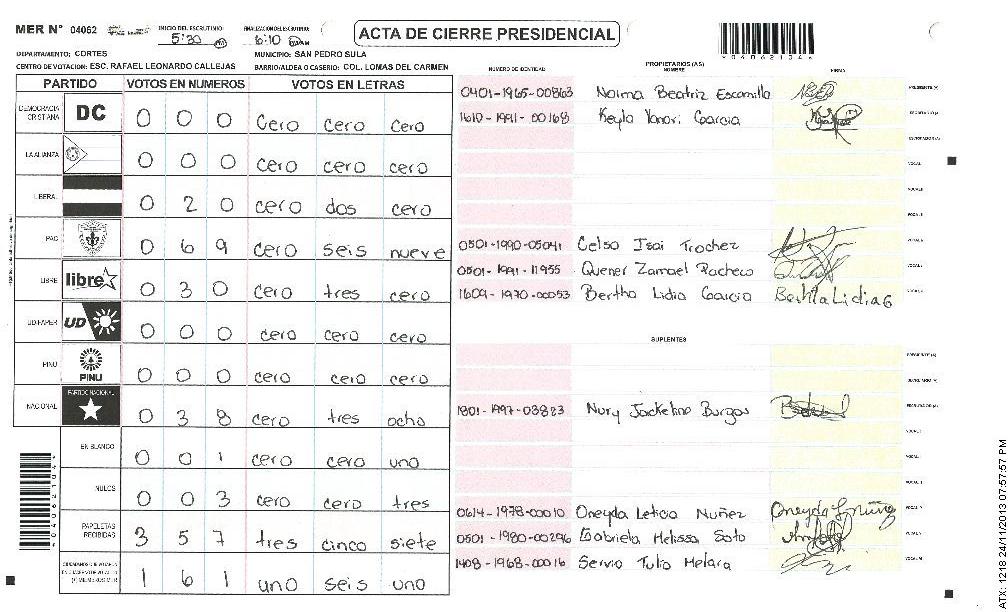 MER N° 04062
INICIO DEL ESCRUTINIO:
5:30
FINALIZACION DEL ESCRUTINIO:
6:10
ACTA DE CIERRE PRESIDENCIAL
DEPARTAMENTO: CORTES
MUNICIPIO: SAN PEDRO SULA
CENTRO DE VOTACION: ESC. RAFAEL LEONARDO CALLEJAS
BARRIO/ALDEA O CASERIO: COL. LOMAS DEL CARMEN
PARTIDO VOTOS EN NUMEROS VOTOS EN LETRAS
DEMOCRACIA CRISTIANA DC 0 0 0 cero cero cero
LA ALIANZA 0 0 0 cero cero cero
LIBERAL 0 2 0 cero dos cero
PAC 0 6 9 cero seis nueve
LIBRE libre 0 3 0 cero tres cero
UD/FAPER UD 0 0 0 cero cero cero
PINU PINU 0 0 0 cero cero cero
NACIONAL PARTIDO NACIONAL 0 3 8 cero tres ocho
EN BLANCO 0 0 1 cero cero uno
NULOS 0 0 3 cero cero tres
PAPELETAS RECIBIDAS 3 5 7 tres cinco siete
1 6 1 uno seis uno
NUMERO DE IDENTIDAD PROPIETARIOS (AS) NOMBRE FIRMA
0401-1965-00863 Norma Beatriz Escamilla PRESIDENTE (A)
1610-1991-00168 Keyla Yanori Garcia SECRETARIO (A)
ESCRUTADOR (A)
VOCAL
0501-1990-05041 Celso Isai Trochez
0501-1991-11955 Quener Zamael Pacheco
1609-1970-00053 Bertha Lidia Garcia Bertha Lidia G
SUPLENTES
PRESIDENTE (A)
SECRETARIO (A)
1801-1997-03823 Nury Jackeline Burgos ESCRUTADOR (A)
0614-1978-00010 Oneyda Leticia Nuñez Oneyda L nuñez
0501-1980-00296 Gabriela Melissa Soto
1408-1968-00016 Servio Tulio Melara
*040621044*
ATX: 1218 24/11/2013 07:57:57 PM